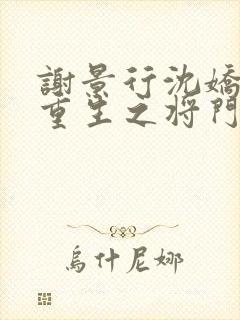 謝景行沈嬌
重生之將門
烏什尼娜